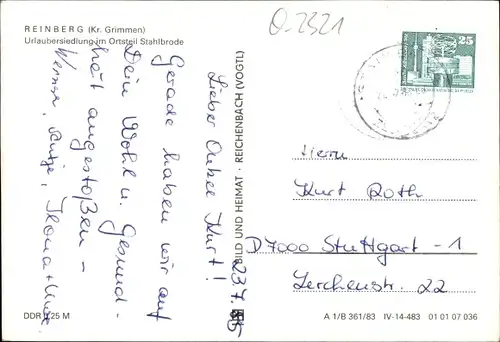 REINBERG (Kr. Grimmen)
Urlaubersiedlung im Ortsteil Stahlbrode
O-2321
25
23.7.85
Lieber Onkel Kurt!
Gerade haben wir auf
Dein Wohl u. Gesund-
heit angestoßen –
Werner, Antje, Ilona +
BILD UND HEIMAT · REICHENBACH (VOGTL)
Herrn
Kurt Roth
D7000 Stuttgart - 1
Lerchenstr. 22
DDR 0,25 M
A 1/B 361/83 IV-14-483 01 01 07 036